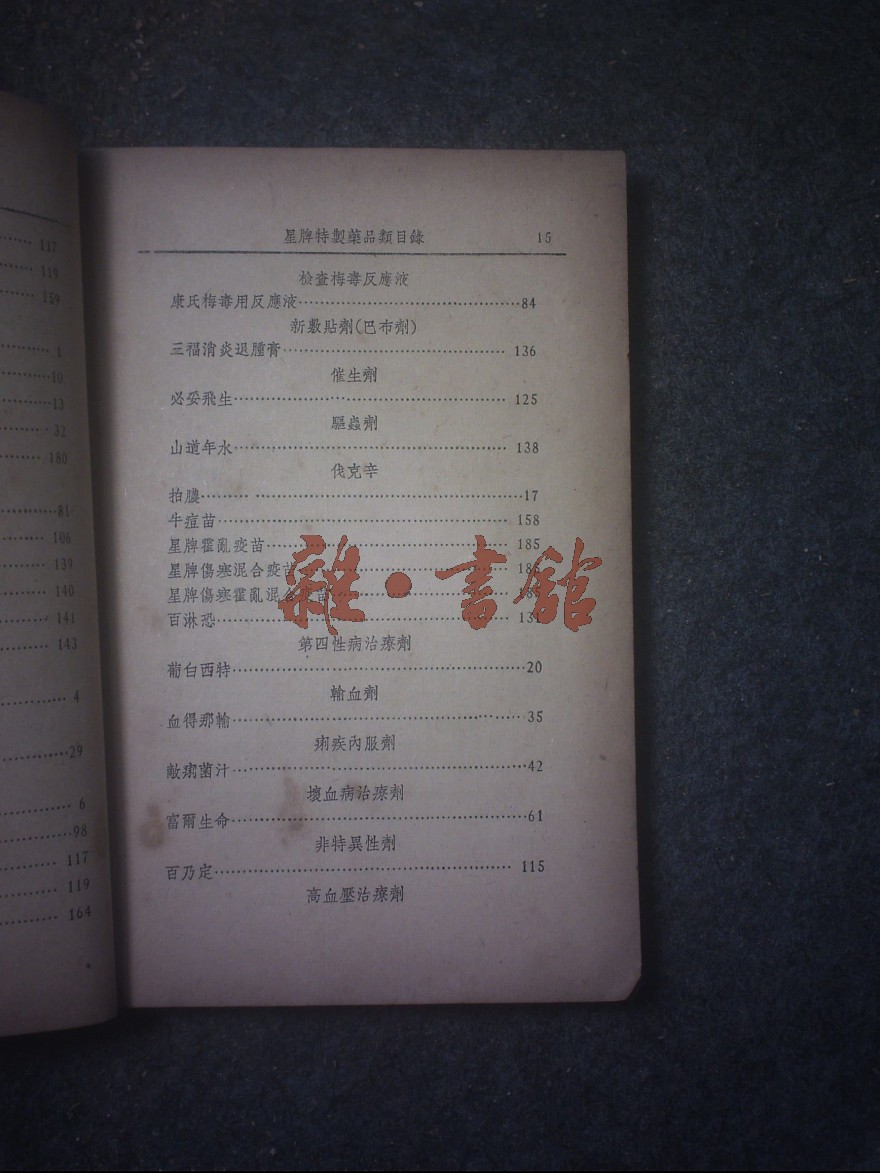 117
119
159
1
10
13
32
180
81
106
139
140
141
143
4
29
6
98
117
119
164
星牌特製藥品類目錄 15
檢查梅毒反應液
康氏梅毒用反應液……84
新敷貼劑(巴布劑)
三福消炎退腫膏……136
催生劑
必妥飛生……125
驅蟲劑
山道年水……138
伐克辛
拍膿……17
牛痘苗……158
星牌霍亂疫苗……185
星牌傷寒混合疫苗……
星牌傷寒霍亂混合疫苗……185
百淋恐……131
第四性病治療劑
葡白西特……20
輸血劑
血得那輸……35
痢疾內服劑
敵痢菌汁……42
壞血病治療劑
富爾生命……61
非特異性劑
百乃定……115
高血壓治療劑
雜·書館